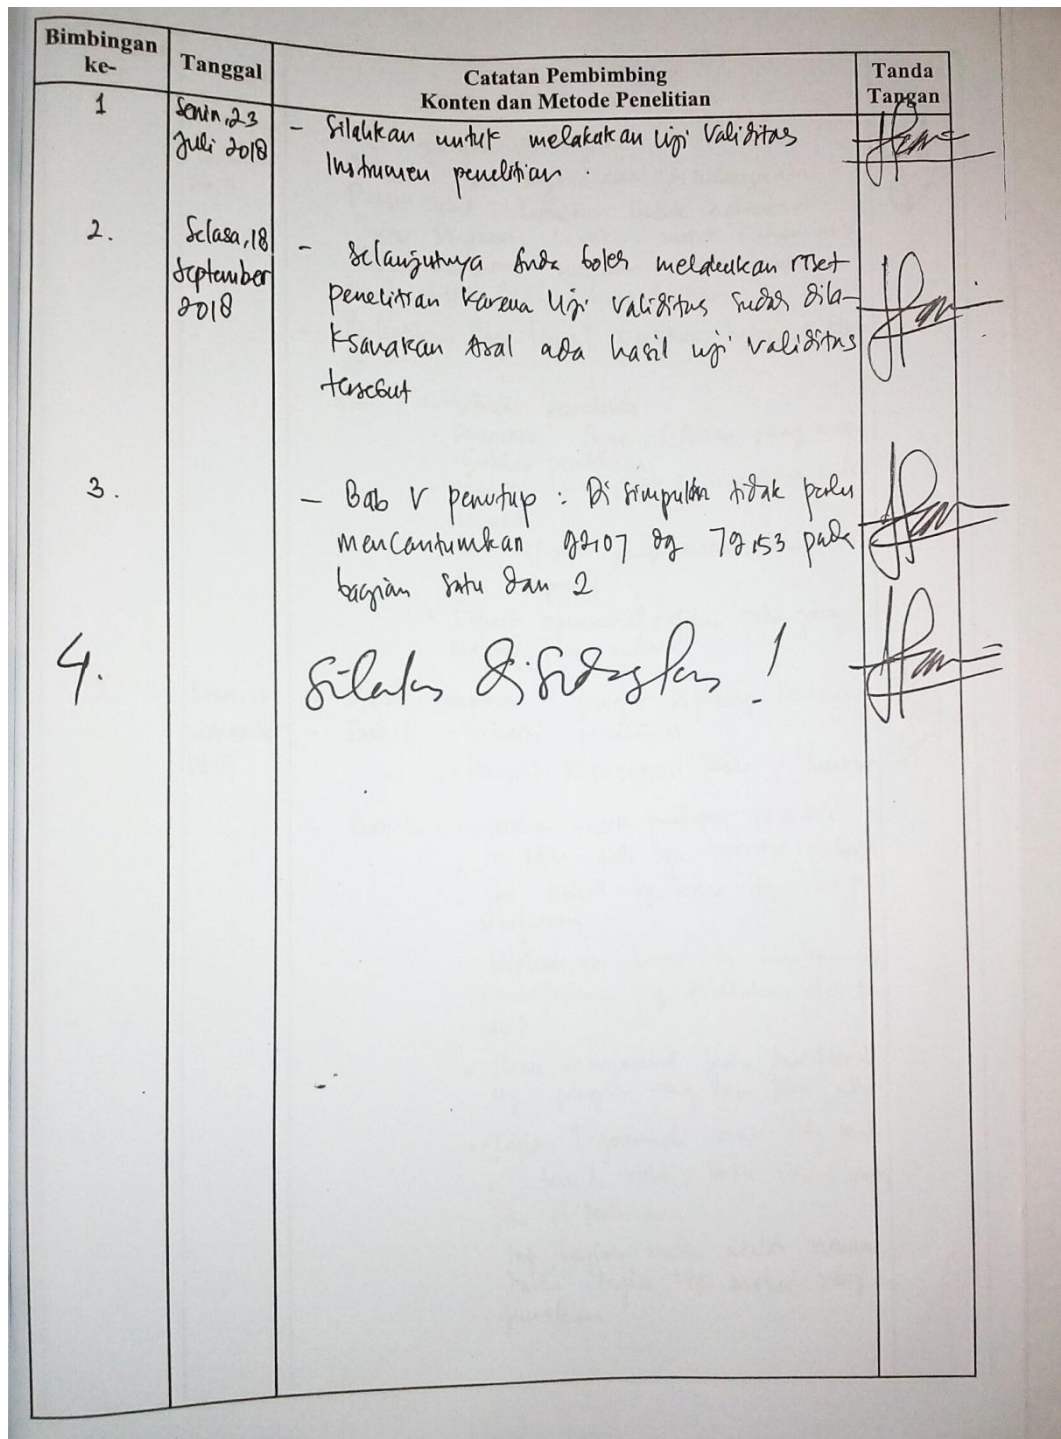 Bimbingan ke-
Tanggal
Catatan Pembimbing
Konten dan Metode Penelitian
Tanda Tangan
1
Senin, 23
Juli 2018
- Silahkan untuk melakakan Uji Validitas
Instrumen penelitian .
2.
Selasa, 18
September
2018
- Selanjutnya Anda boleh melakukan riset
penelitian karena Uji Validitas sudah dila-
ksanakan Asal ada hasil uji validitas
tersebut
3.
- Bab V penutup : Di simpulan tidak perlu
mencantumkan 92,07 dg 79,53 pada
bagian satu dan 2
4.
Silakan disidangkan !